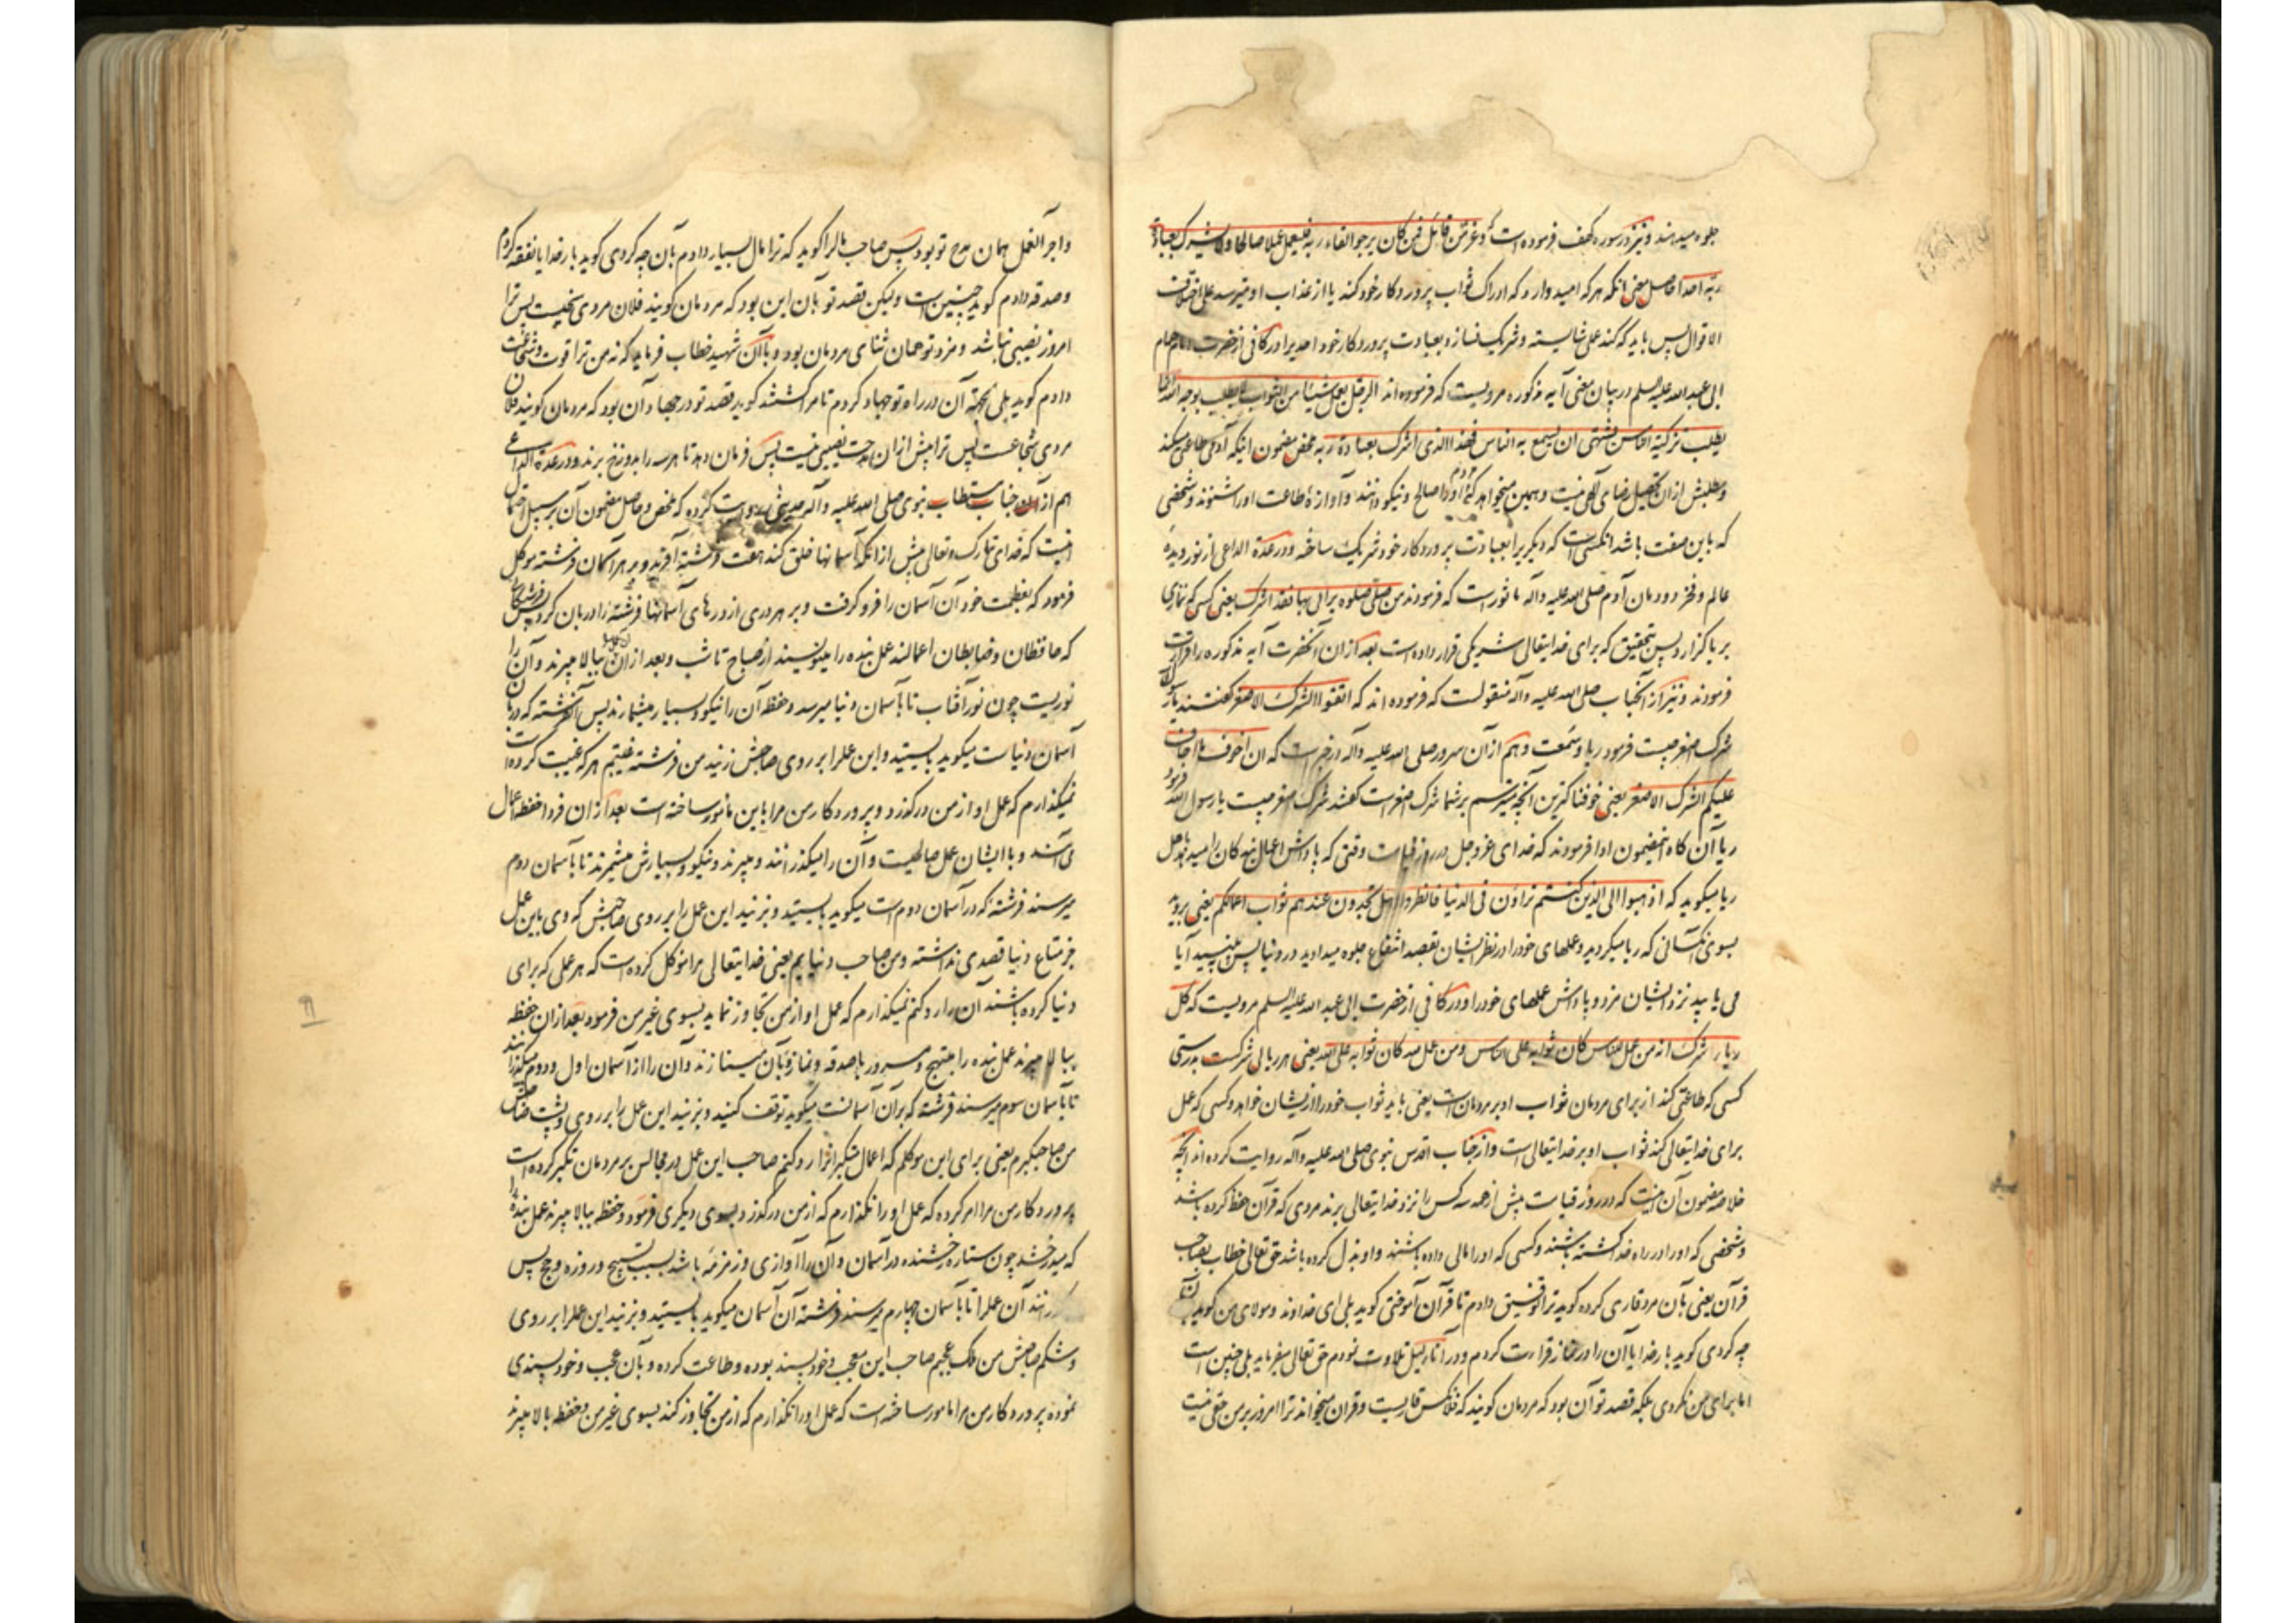 جلوه میدهند و نیز در سوره کهف فرموده است و عز من قائل فمن کان یرجو لقاء ربه فلیعمل عملا صالحا ولا یشرک بعبادة
ربه احدا حاصل معنی آنکه هر که امید دارد که ادراک ثواب پروردکار خود کند یا از عذاب او میترسد علی اختلاف
الاقوال پس باید که کند عملی شایسته و شریک نسازد بعبادت پروردکار خود احدیرا و در کافی از حضرت امام همام
ابی عبد الله علیه السلم در بیان معنی آیه مذکوره مرویست که فرموده اند الرجل یعمل شیئا من الثواب لا یطلب به وجه الله انما
یطلب تزکیة الناس یشتهی ان یسمع به الناس فهذا الذی اشرک بعبادة ربه مضمون اینکه آدمی طاعتی میکند
و مطلبش از آن تحصیل رضای الهی نیست و همین میخواهد که مردم او را صالح و نیکو دانند و آوازهٔ طاعت او را شنوند و شخصی
که باین صفت باشد آنکسی است که دیکریرا بعبادت پروردکار خود شریک ساخته و در عدة الداعی از نور دیدهٔ
عالم و فخر دودمان آدم صلی الله علیه وآله ماثور است که فرمودند من صلی صلوة یرائی بها فقد اشرک یعنی کسی که نمازی
بریا کزارد پس بتحقیق که برای خدایتعالی شریکی قرار داده است بعد از آن آنحضرت آیه مذکوره را قرائت
فرمودند و نیز از آنجناب صلی الله علیه وآله منقولست که فرموده اند که اتقوا الشرک الاصغر کفتند یا رسول الله
شرک اصغر چیست فرمود ریا و سمعت و هم از آن سرور صلی الله علیه وآله در خبر است که ان اخوف ما اخاف
علیکم الشرک الاصغر یعنی خوفناکترین آنچه میترسم بر شما شرک اصغر است کفتند شرک اصغر چیست یا رسول الله فرمود
ریا آن کاه اینمضمون ادا فرمودند که خدای عز و جل در روز قیامت وقتی که پاداش اعمال بندکان را میدهد باهل
ریا میکوید که اذهبوا الی الذین کنتم تراؤن فی الدنیا فانظروا هل تجدون عندهم ثواب اعمالکم یعنی بروید
بسوی آنکسانی که ریا میکردید و عملهای خود را در نظر ایشان بقصد انتفاع جلوه میدادید در دنیا پس ببینید آیا
می یابید نزد ایشان مزد و پاداش عملهای خود را و در کافی از حضرت ابی عبد الله علیه السلم مرویست که کل
ریاء شرک انه من عمل للناس کان ثوابه علی الناس ومن عمل لله کان ثوابه علی الله یعنی هر ریائی شرکست بدرستی
کسی که طاعتی کند از برای مردمان ثواب او بر مردمان است یعنی باید ثواب خود را از ایشان خواهد و کسی که عمل
برای خدایتعالی کند ثواب او بر خدایتعالی است و از جناب اقدس نبوی صلی الله علیه وآله روایت کرده اند آنچه
خلاصه مضمون آن اینست که در روز قیامت پیش از همه سه کس را نزد خدایتعالی برند مردی که قرآن حفظ کرده باشد
و شخصی که او را در راه خدا کشته باشند و کسی که او را مالی داده باشند و او بذل کرده باشد حق تعالی خطاب بصاحب
قرآن یعنی بآن مرد قاری کرده کوید ترا توفیق دادم تا قرآن آموختی کوید بلی ای خداوند و مولای من کوید بآن
چه کردی کوید بار خدایا آن را در نماز قراءت کردم و در آناء لیل تلاوت نمودم حق تعالی میفرماید بلی چنین است
اما برای من نکردی بلکه قصد تو آن بود که مردمان کویند که فلانکس قاریست و قرآن میخواند ترا امروز بر من حقی نیست
و اجر العمل همان مدح تو بود پس صاحب مال را کوید که ترا مال بسیار دادم بآن چه کردی کوید بار خدایا نفقه کردم
و صدقه دادم کوید چنین است ولیکن قصد تو بآن این بود که مردمان کویند فلان مردی سخیست پس ترا
امروز نصیبی نباشد و مزد تو همان ثنای مردمان بود و با آن شهید خطاب فرماید که نه من ترا قوت و شجاعت
دادم کوید بلی آن در راه تو جهاد کردم تا مرا کشتند کوید قصد تو در جهاد آن بود که مردمان کویند فلان
مردی شجاعست پس ترا پیش از آن مدحت نصیبی نیست پس فرمان دهد تا هر سه را بدوزخ برند و در عدة الداعی
هم از آن جناب مستطاب نبوی صلی الله علیه وآله حدیثی روایت کرده که ملخص و حاصل مضمون آن بر سبیل اجمال
اینست که خدای تبارک و تعالی پیش از آنکه آسمانها خلق کند هفت فرشته آفرید و بر هر آسمان فرشته موکل
فرمود که بعظمت خود آن آسمان را فرو کرفت و بر هر دری از درهای آسمانها فرشته را دربان کرد پس فرشتکان
که حافظان و ضابطان اعمالند عمل بنده را مینویسند از صباح تا شب و بعد از آن ببالا میبرند و آن را
نوریست چون نور آفتاب تا بآسمان دنیا میرسد و حفظه آن را نیکو و بسیار میشمارند پس آنفرشته که دربان
آسمان دنیاست میکوید بایستید و این عمل را بر روی صاحبش زنید من فرشته غیبتم هر که غیبت کرده است
نمیکذارم که عمل او از من درکذرد و پروردکار من مرا باین مامور ساخته است بعد از آن فردا حفظه اعمال
می آیند و با ایشان عمل صالحیست و آن را میکذرانند و میبرند و نیکو و بسیارش میشمرند تا بآسمان دوم
میرسند فرشته که در آسمان دوم است میکوید بایستید و بزنید این عمل را بر روی صاحبش که وی باین عمل
جز متاع دنیا قصدی نداشته و من صاحب دنیایم یعنی خدایتعالی مرا موکل کرده است که هر عملی که برای
دنیا کرده باشند آن را رد کنم نمیکذارم که عمل او از من تجاوز نماید بسوی غیر من فرمود بعد از آن حفظه
ببالا میبرند عمل بنده را مبتهج و مسرور با صدقه و نماز و بآن مینازند و آن را از آسمان اول و دوم میکذرانند
تا بآسمان سوم میرسند فرشته که بر آن آسمانست میکوید توقف کنید و بزنید این عمل را بر روی و پشت صاحبش
من صاحب کبرم یعنی برای این موکلم که اعمال متکبرانرا رد کنم صاحب این عمل در مجالس بر مردمان تکبر کرده است
پروردکار من مرا امر کرده که عمل او را نکذارم که از من درکذرد بسوی دیکری فرمود و حفظه ببالا میبرند عمل بنده را
که میدرخشد چون ستاره درخشنده در آسمان و آن را آوازی و زمزمه باشد بسبب تسبیح و روزه و حج پس
آن عمل را تا بآسمان چهارم میرسند فرشته آن آسمان میکوید بایستید و بزنید این عمل را بر روی
و شکم صاحبش من ملک عجبم صاحب این معجب و خودپسند بوده و طاعت کرده و بآن عجب و خودپسندی
نموده پروردکار من مرا مامور ساخته است که عمل او را نکذارم که از من تجاوز کند بسوی غیر من و حفظه بالا میبرند